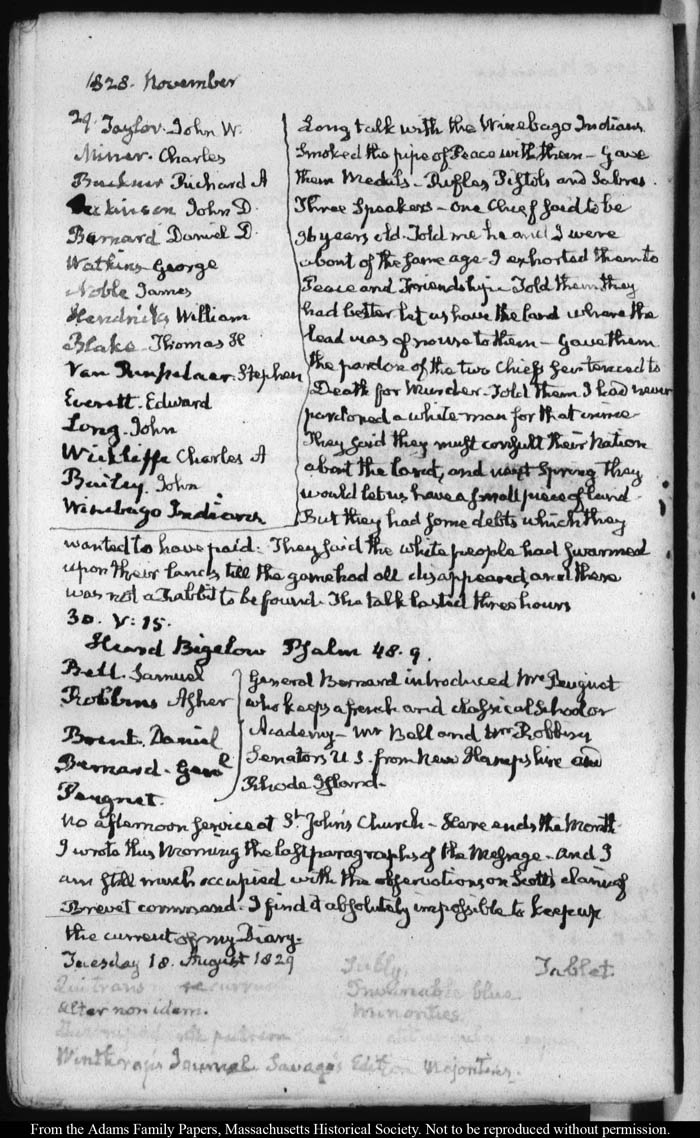 1828. November
29. Taylor. John W.
Miner. Charles
Buckner Richard A
Dickinson John D.
Barnard Daniel D.
Watkins George
Noble James
Hendricks William
Blake. Thomas H
Van Rensselaer. Stephen
Everett. Edward
Long. John
Wickliffe Charles A
Bailey. John
Winebago Indians
Long talk with the Winebago Indians
Smoked the pipe of Peace with them – Gave
them Medals – Rifles, Pistols and Sabres.
Three Speakers – One Chief said to be
96 years old. Told me he and I were
about of the same age – I exhorted them to
Peace and Friendship – Told them they
had better let us have the land where the
lead was of no use to them – Gave them
the pardon of the two Chiefs sentenced to
Death for Murder – Told them I had never
pardoned a white man for that crime –
They said they must consult their Nation
about the land, and next Spring they
would let us have a small piece of land
But they had some debts which they
wanted to have paid. They said the white people had swarmed
upon their lands till the game had all disappeared, and there
was not a rabbit to be found. The talk lasted three hours
30. V: 15.
Heard Bigelow Psalm 48. 9.
Bell. Samuel
Robbins Asher
Brent. Daniel
Bernard. Genl
Peugnet.
General Bernard introduced Mr Peugnet
who keeps a french and classical School or
Academy – Mr Bell and Mr Robbins
Senators U S. from New Hampshire and
Rhode Island –
No afternoon service at St John's Church – Here ends the Month.
I wrote this Morning the last paragraphs of the Message – and I
am still much occupied with the observations on Scott's claim of
Brevet command. I find it absolutely impossible to keep up
the current of my Diary.
Tuesday 18. August 1829
Tablet.
Invariable blue.
alter non idem.
Minorities
Winthrop's Journal Savage's Edition Majorities.